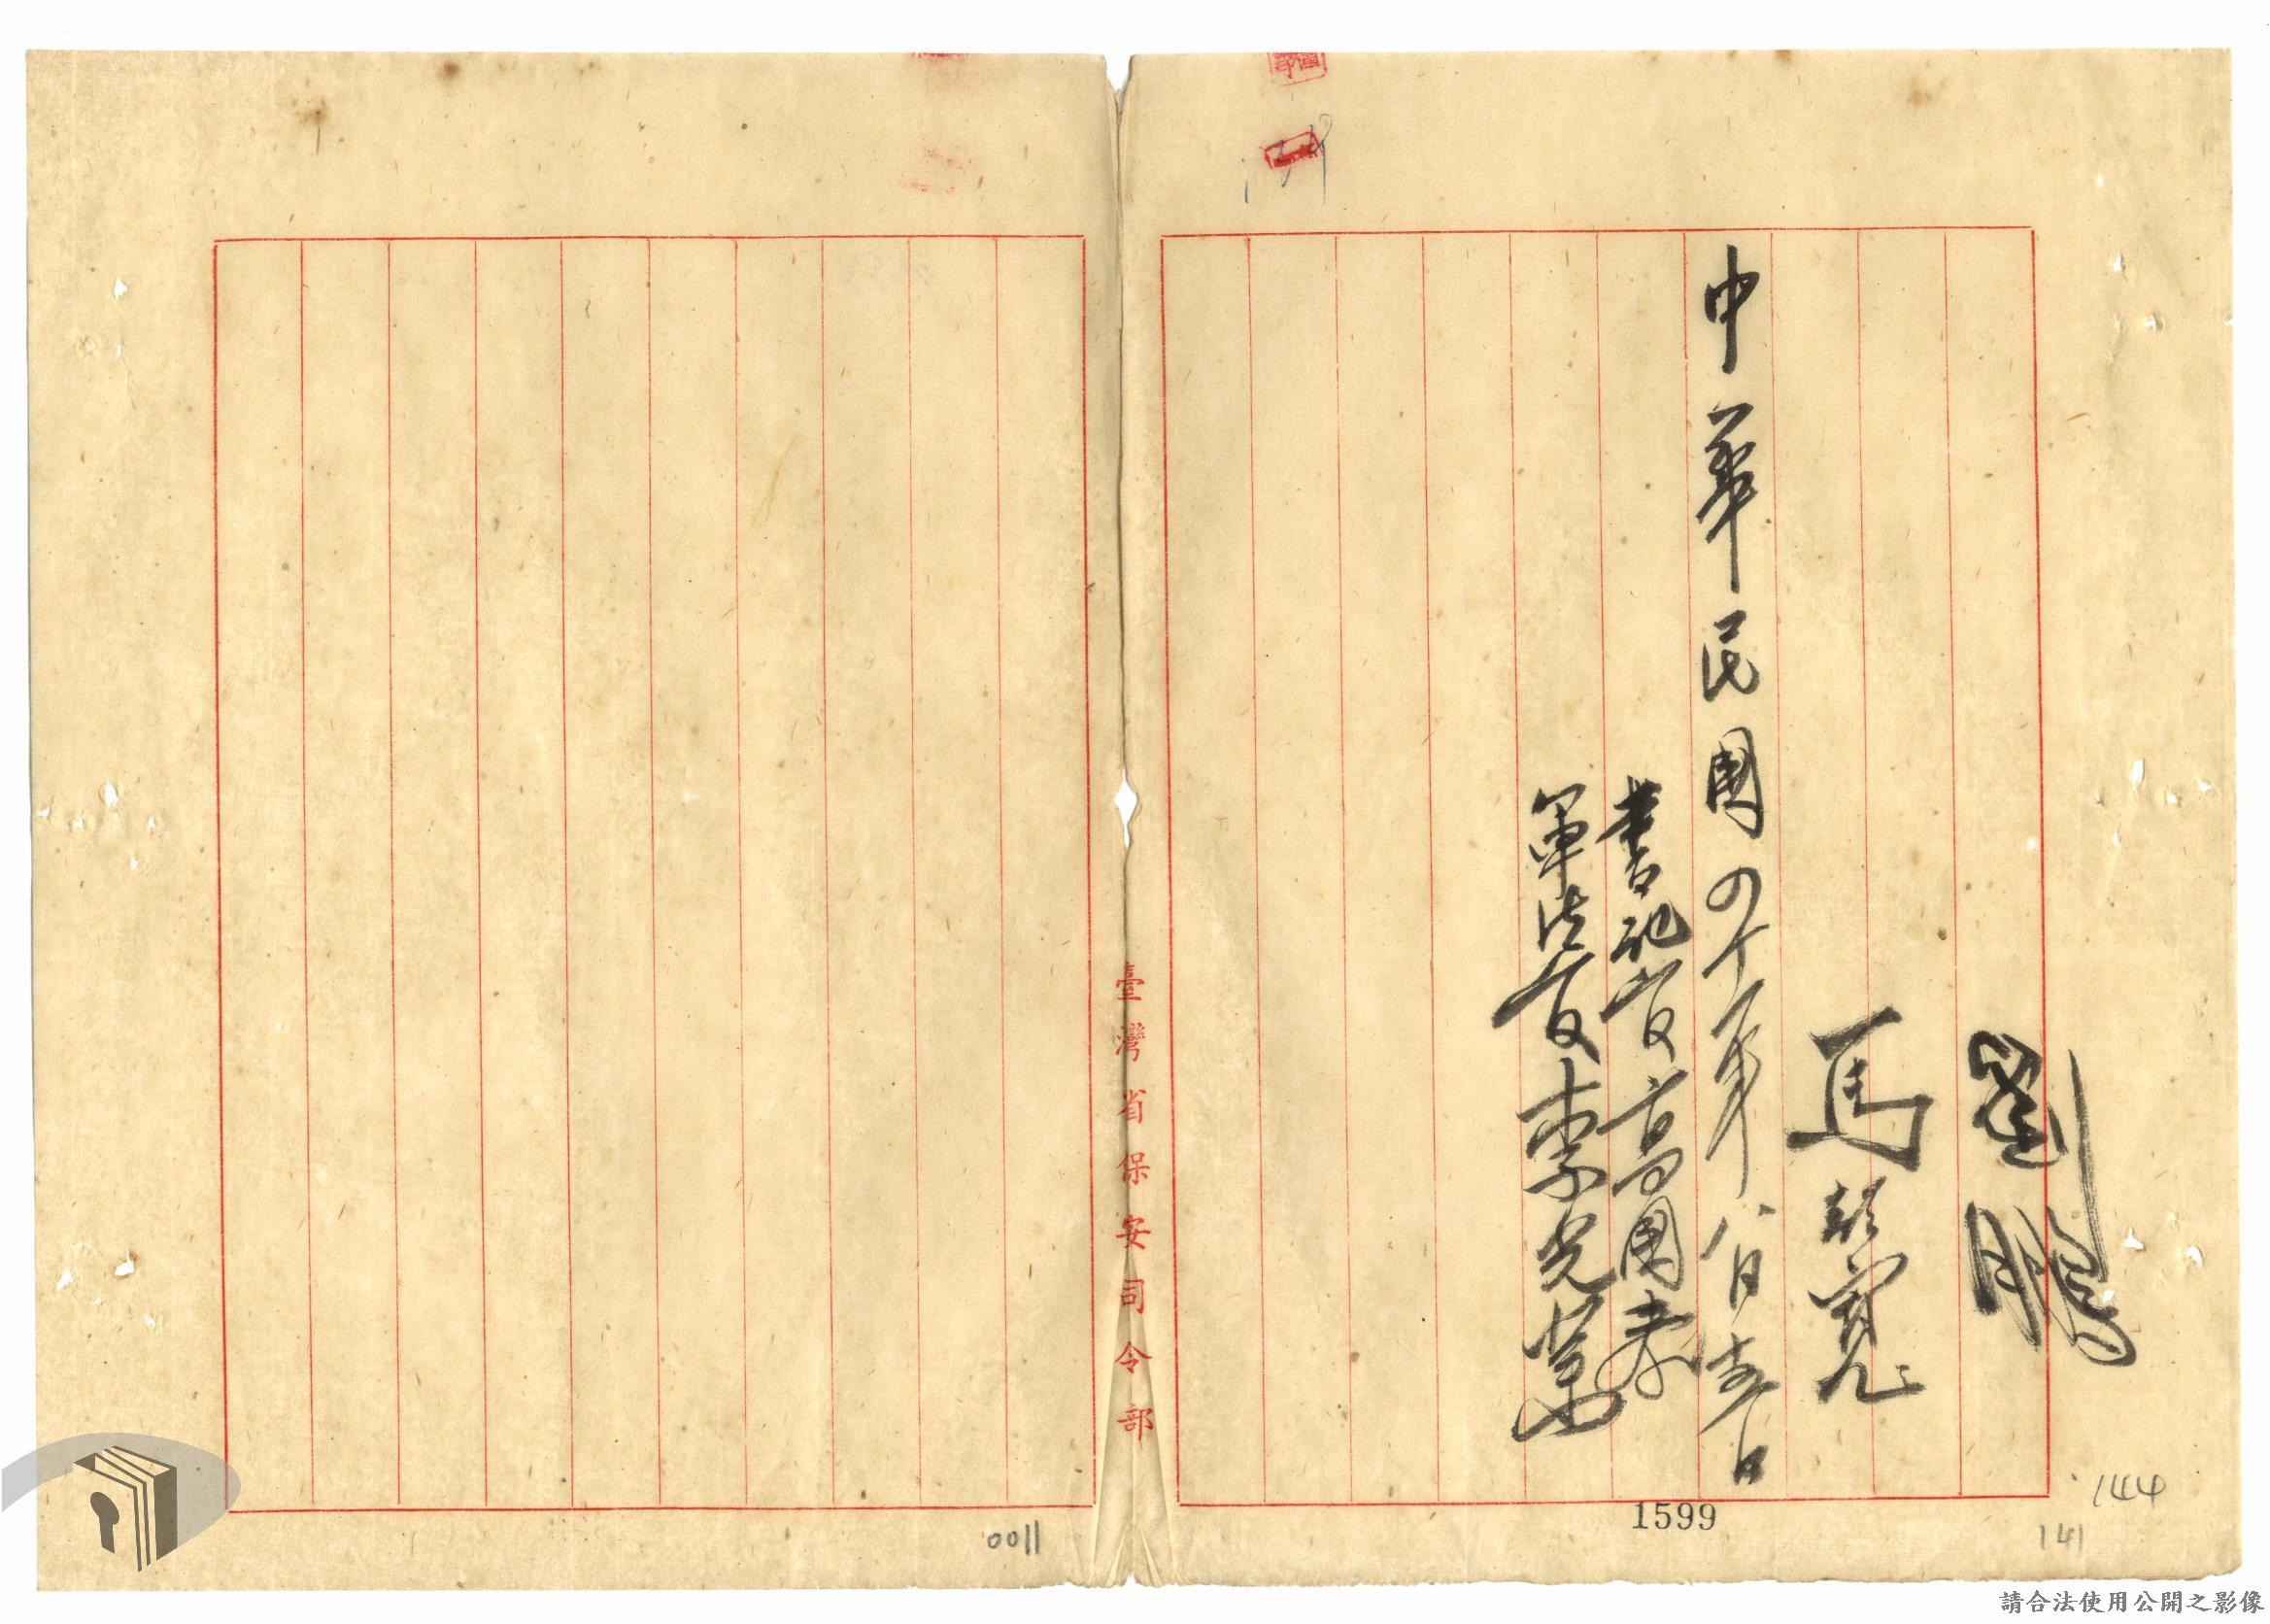 劉鵬
馬超寬
中華民國四十年八月壹日
書記官高國孝
軍法官李光榮
臺灣省保安司令部
1599
144
141
0011
請合法使用公開之影像